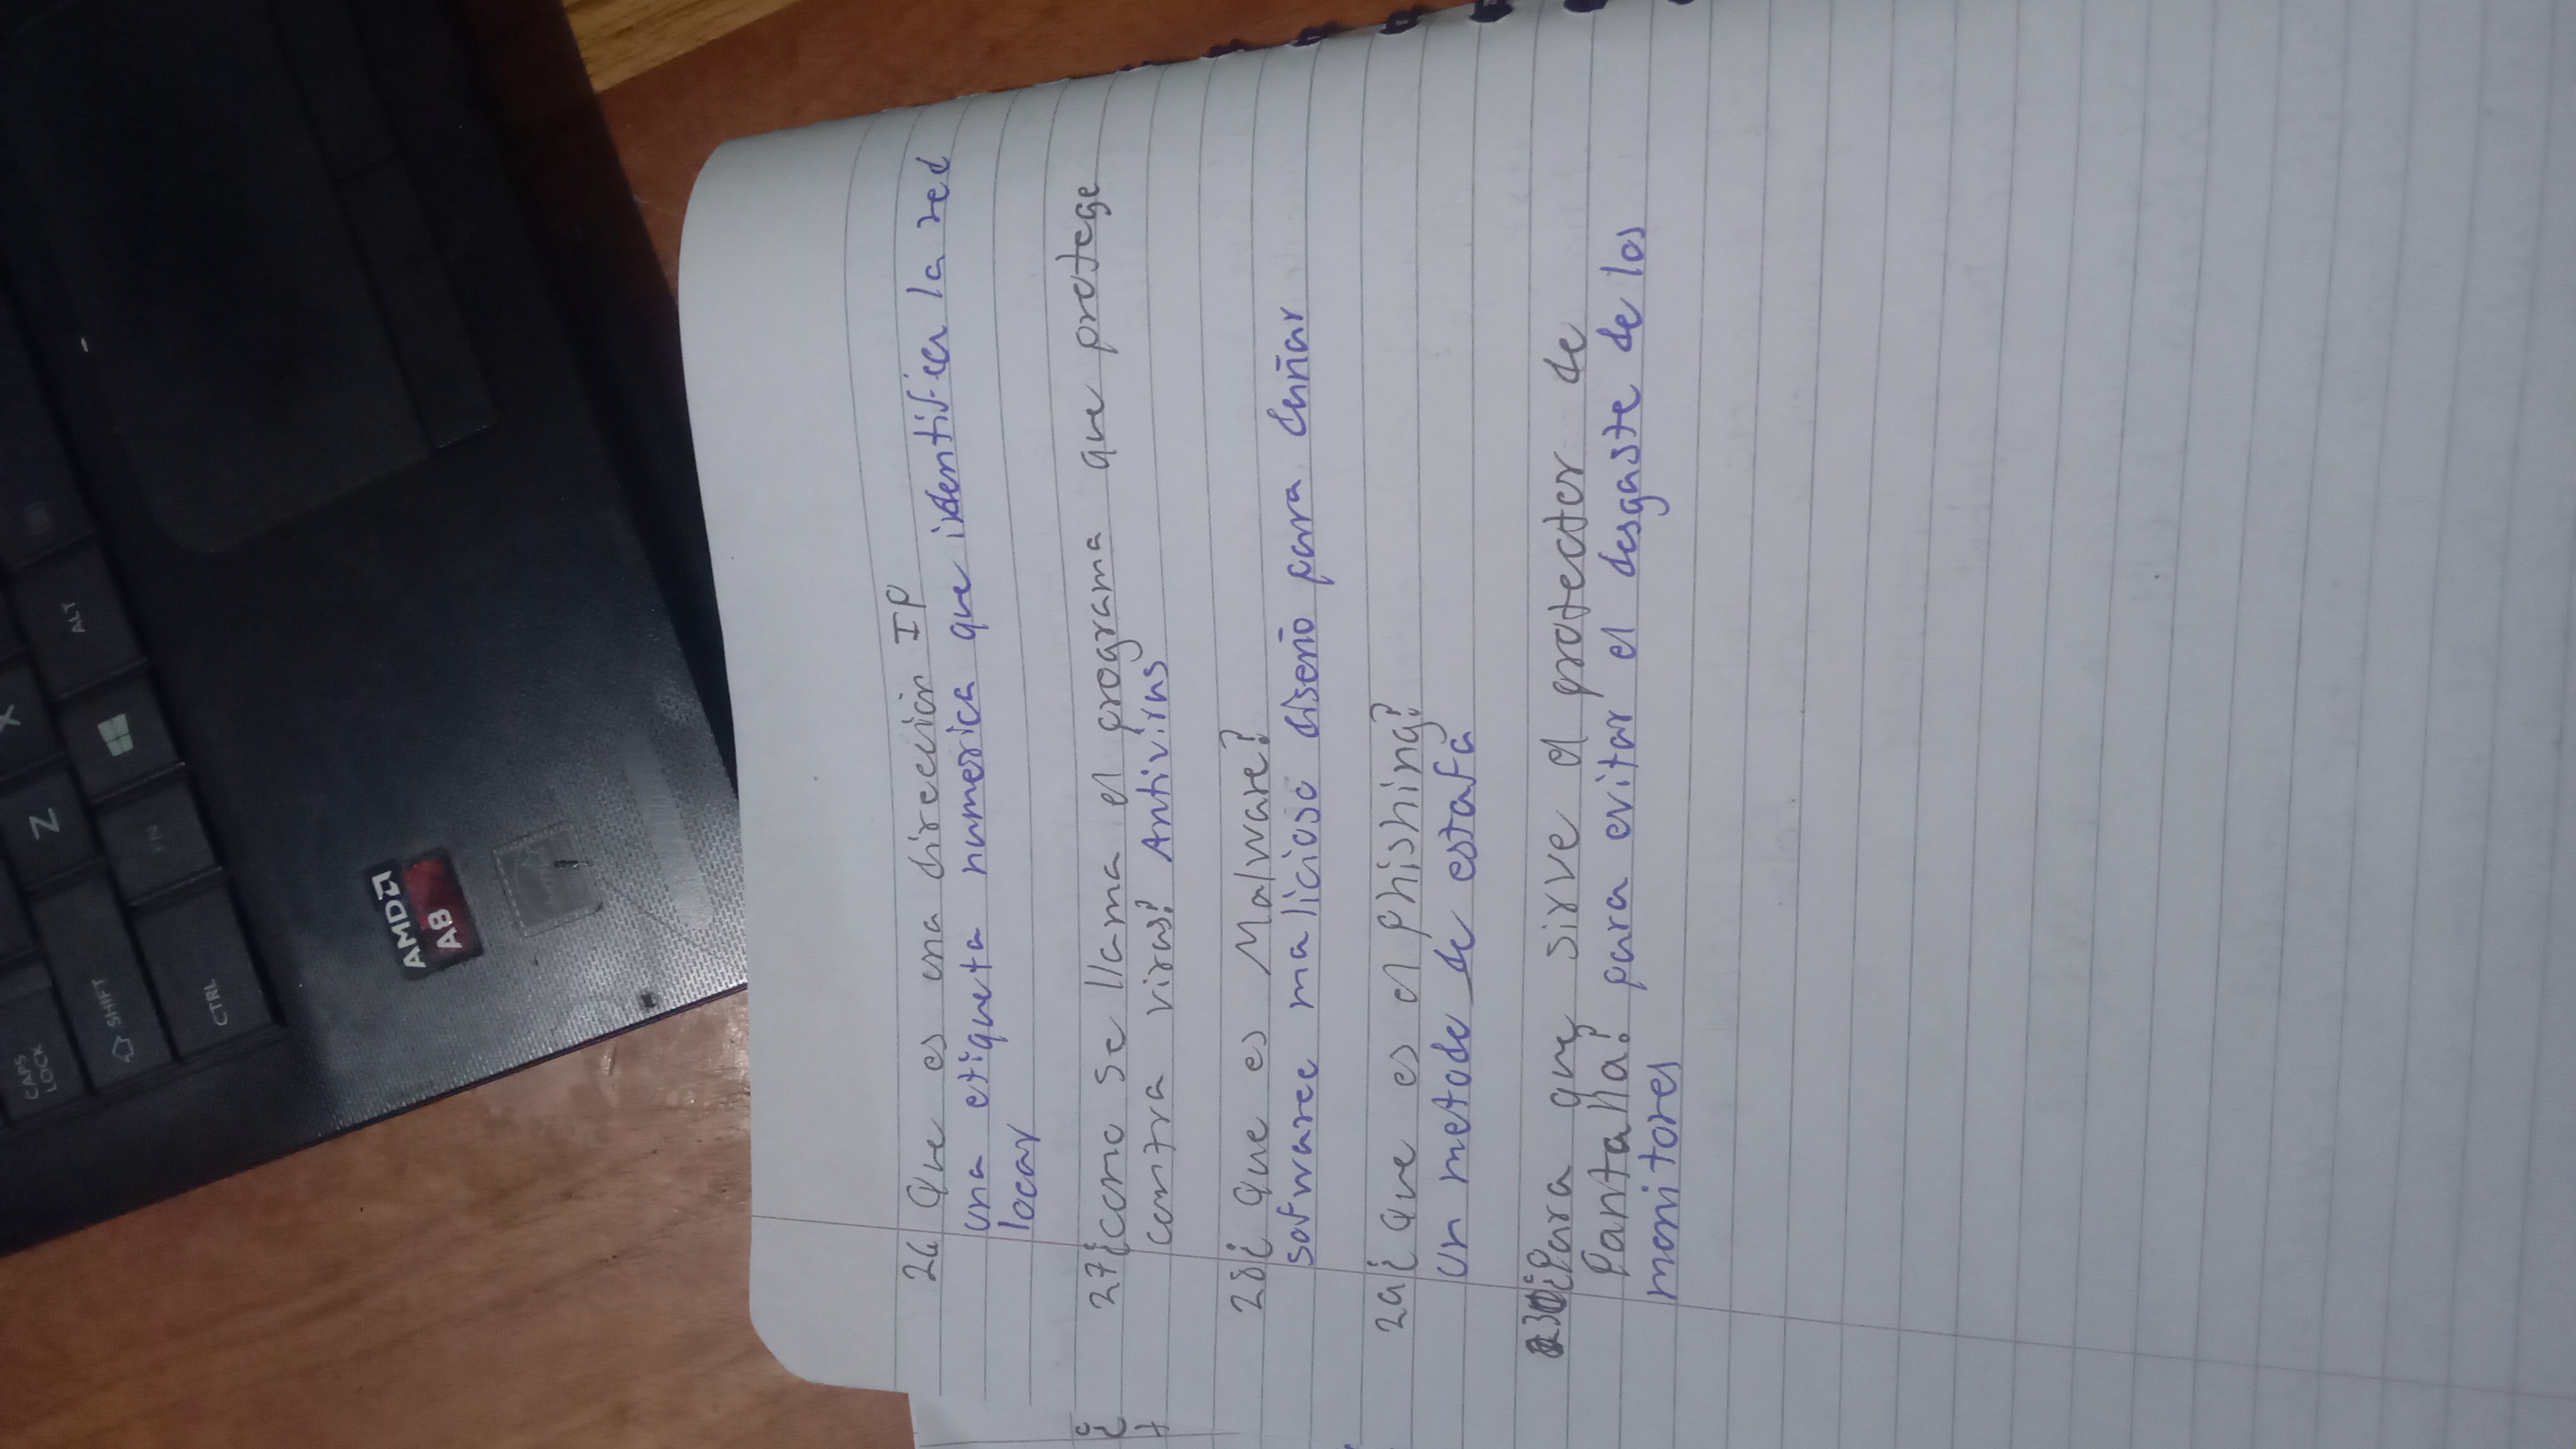 26 Que es una dirección IP
una etiqueta numerica que identifica la red
locar
27 ¿como se llama el programa que protege
contra virus? Antivirus
28 ¿ Que es Malware?
safwaree malicioso diseño para dañar
29 ¿ Que es el phishing?
un metodo de estafa
30 ¿Para que sirve el protector de
Pantalla? para evitar el desgaste de los
monitores
CAPS
LOCK
SHIFT
Z
X
CTRL
FN
ALT
AMD
A8